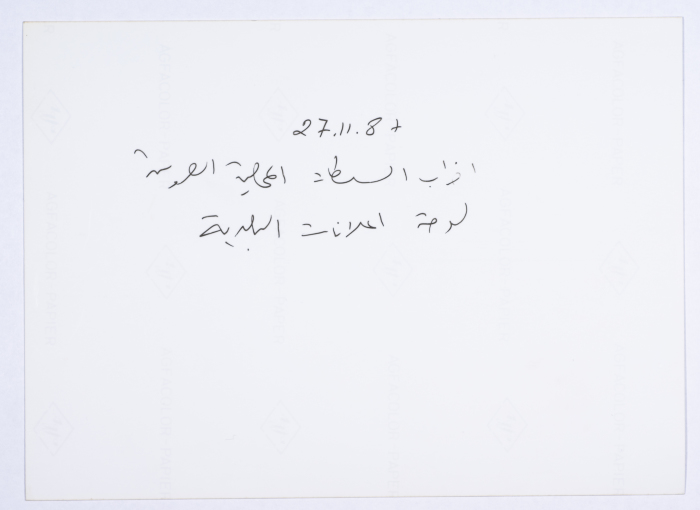 27.11.87
اضراب السلطات المحلية العربية
لوحة اعلانات البلدية